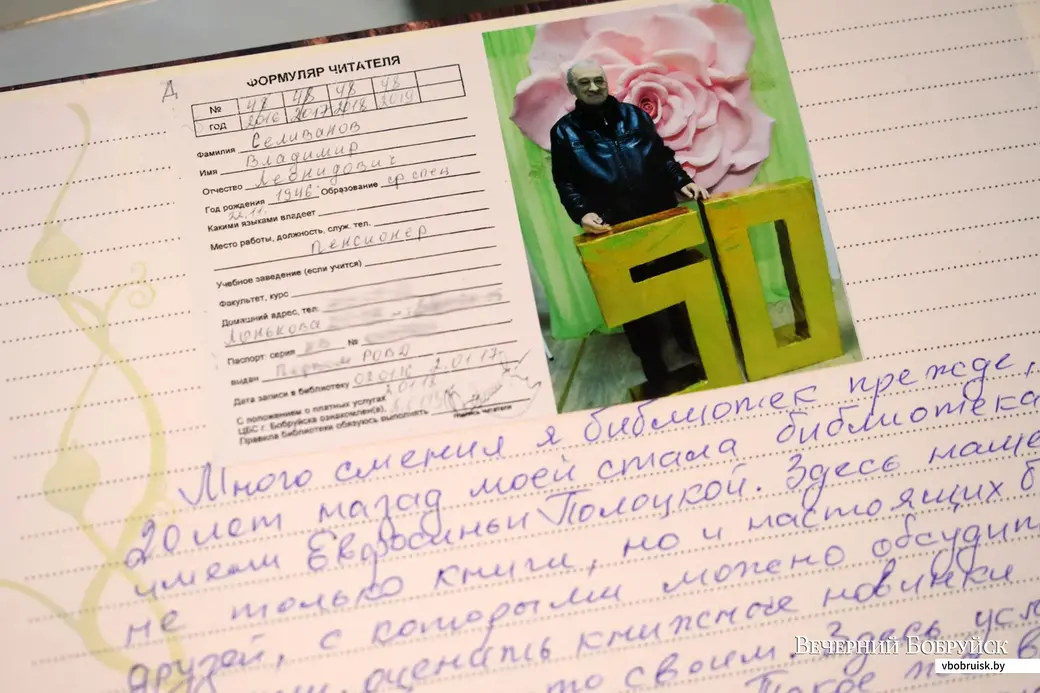 Д
ФОРМУЛЯР ЧИТАТЕЛЯ
№ 48 48 48 48
год 2016 2017 2018 2019
Фамилия Селиванов
Имя Владимир
Отчество Леонидович
Год рождения 1946 Образование ср спец
22.11.
Какими языками владеет
Место работы, должность, служ. тел.
Пенсионер
Учебное заведение (если учится)
Факультет, курс
Домашний адрес, тел.
Лынькова
Паспорт: серия №
выдан РОВД
Дата записи в библиотеку 02.01.17
С положением о платных услугах
ЦБС г. Бобруйска ознакомлен(а).
Правила библиотеки обязуюсь выполнять
подпись читателя
50
Много сменил я библиотек прежде,
20 лет назад моей стала библиотека
имени Евфросиньи Полоцкой. Здесь наше
не только книги, но и настоящих
друзей, с которыми можно обсудит
оценить книжные новинки
то своим. Здесь усл
Такое
ВЕЧЕРНИЙ БОБРУЙСК
vbobruisk.by